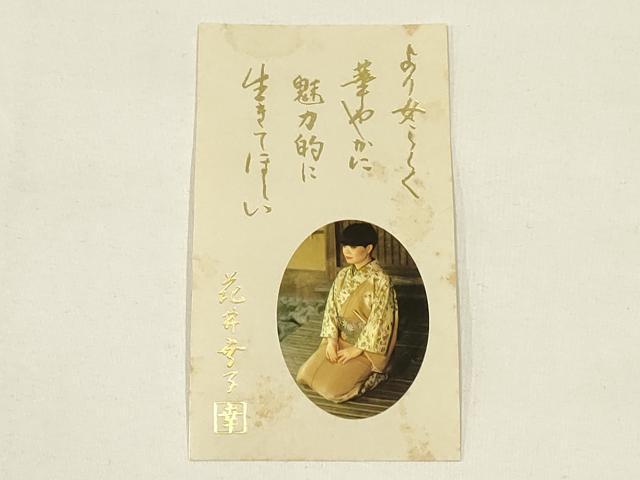 より女らしく
華やかに
魅力的に
生きてほしい
花井幸子
幸